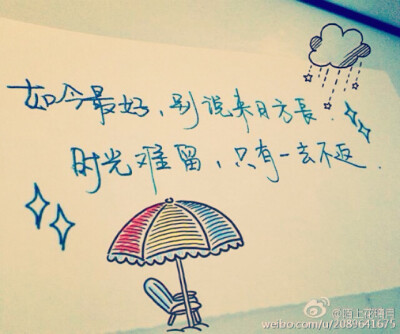 如今最好，别说来日方長．
时光难留，只有一去不返．
weibo.com/u/2089641675